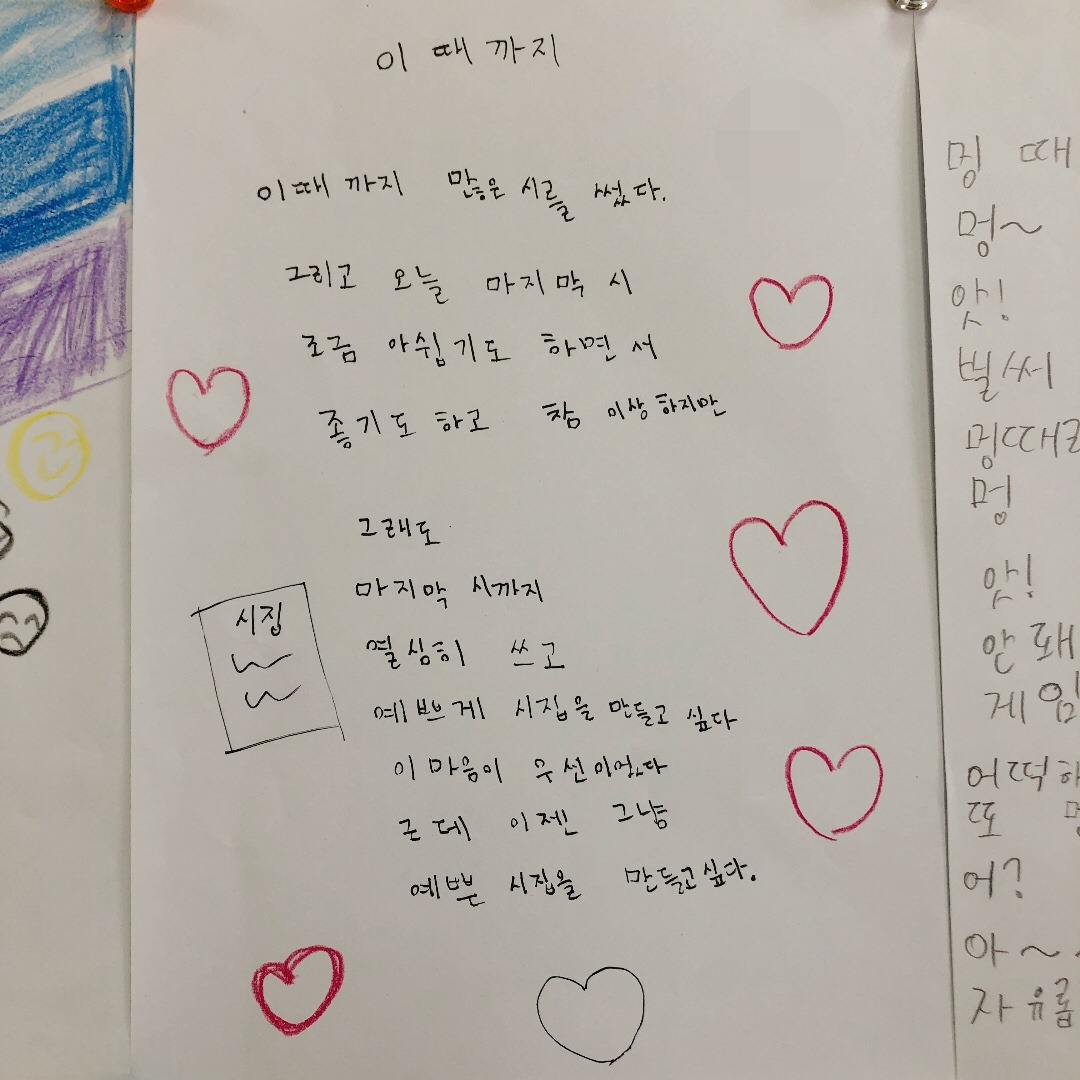 이때까지
이때까지 많은 시를 썼다.
그리고 오늘 마지막 시
조금 아쉽기도 하면서
좋기도 하고 참 이상하지만
그래도
마지막 시까지
열심히 쓰고
예쁘게 시집을 만들고 싶다
이 마음이 우선이었다
근데 이젠 그냥
예쁜 시집을 만들고 싶다.
시집
멍 때
멍~
앗!
벌써
멍때리
멍
앗!
안돼
게임
어떡하
또 멍
어?
아~
자유롭